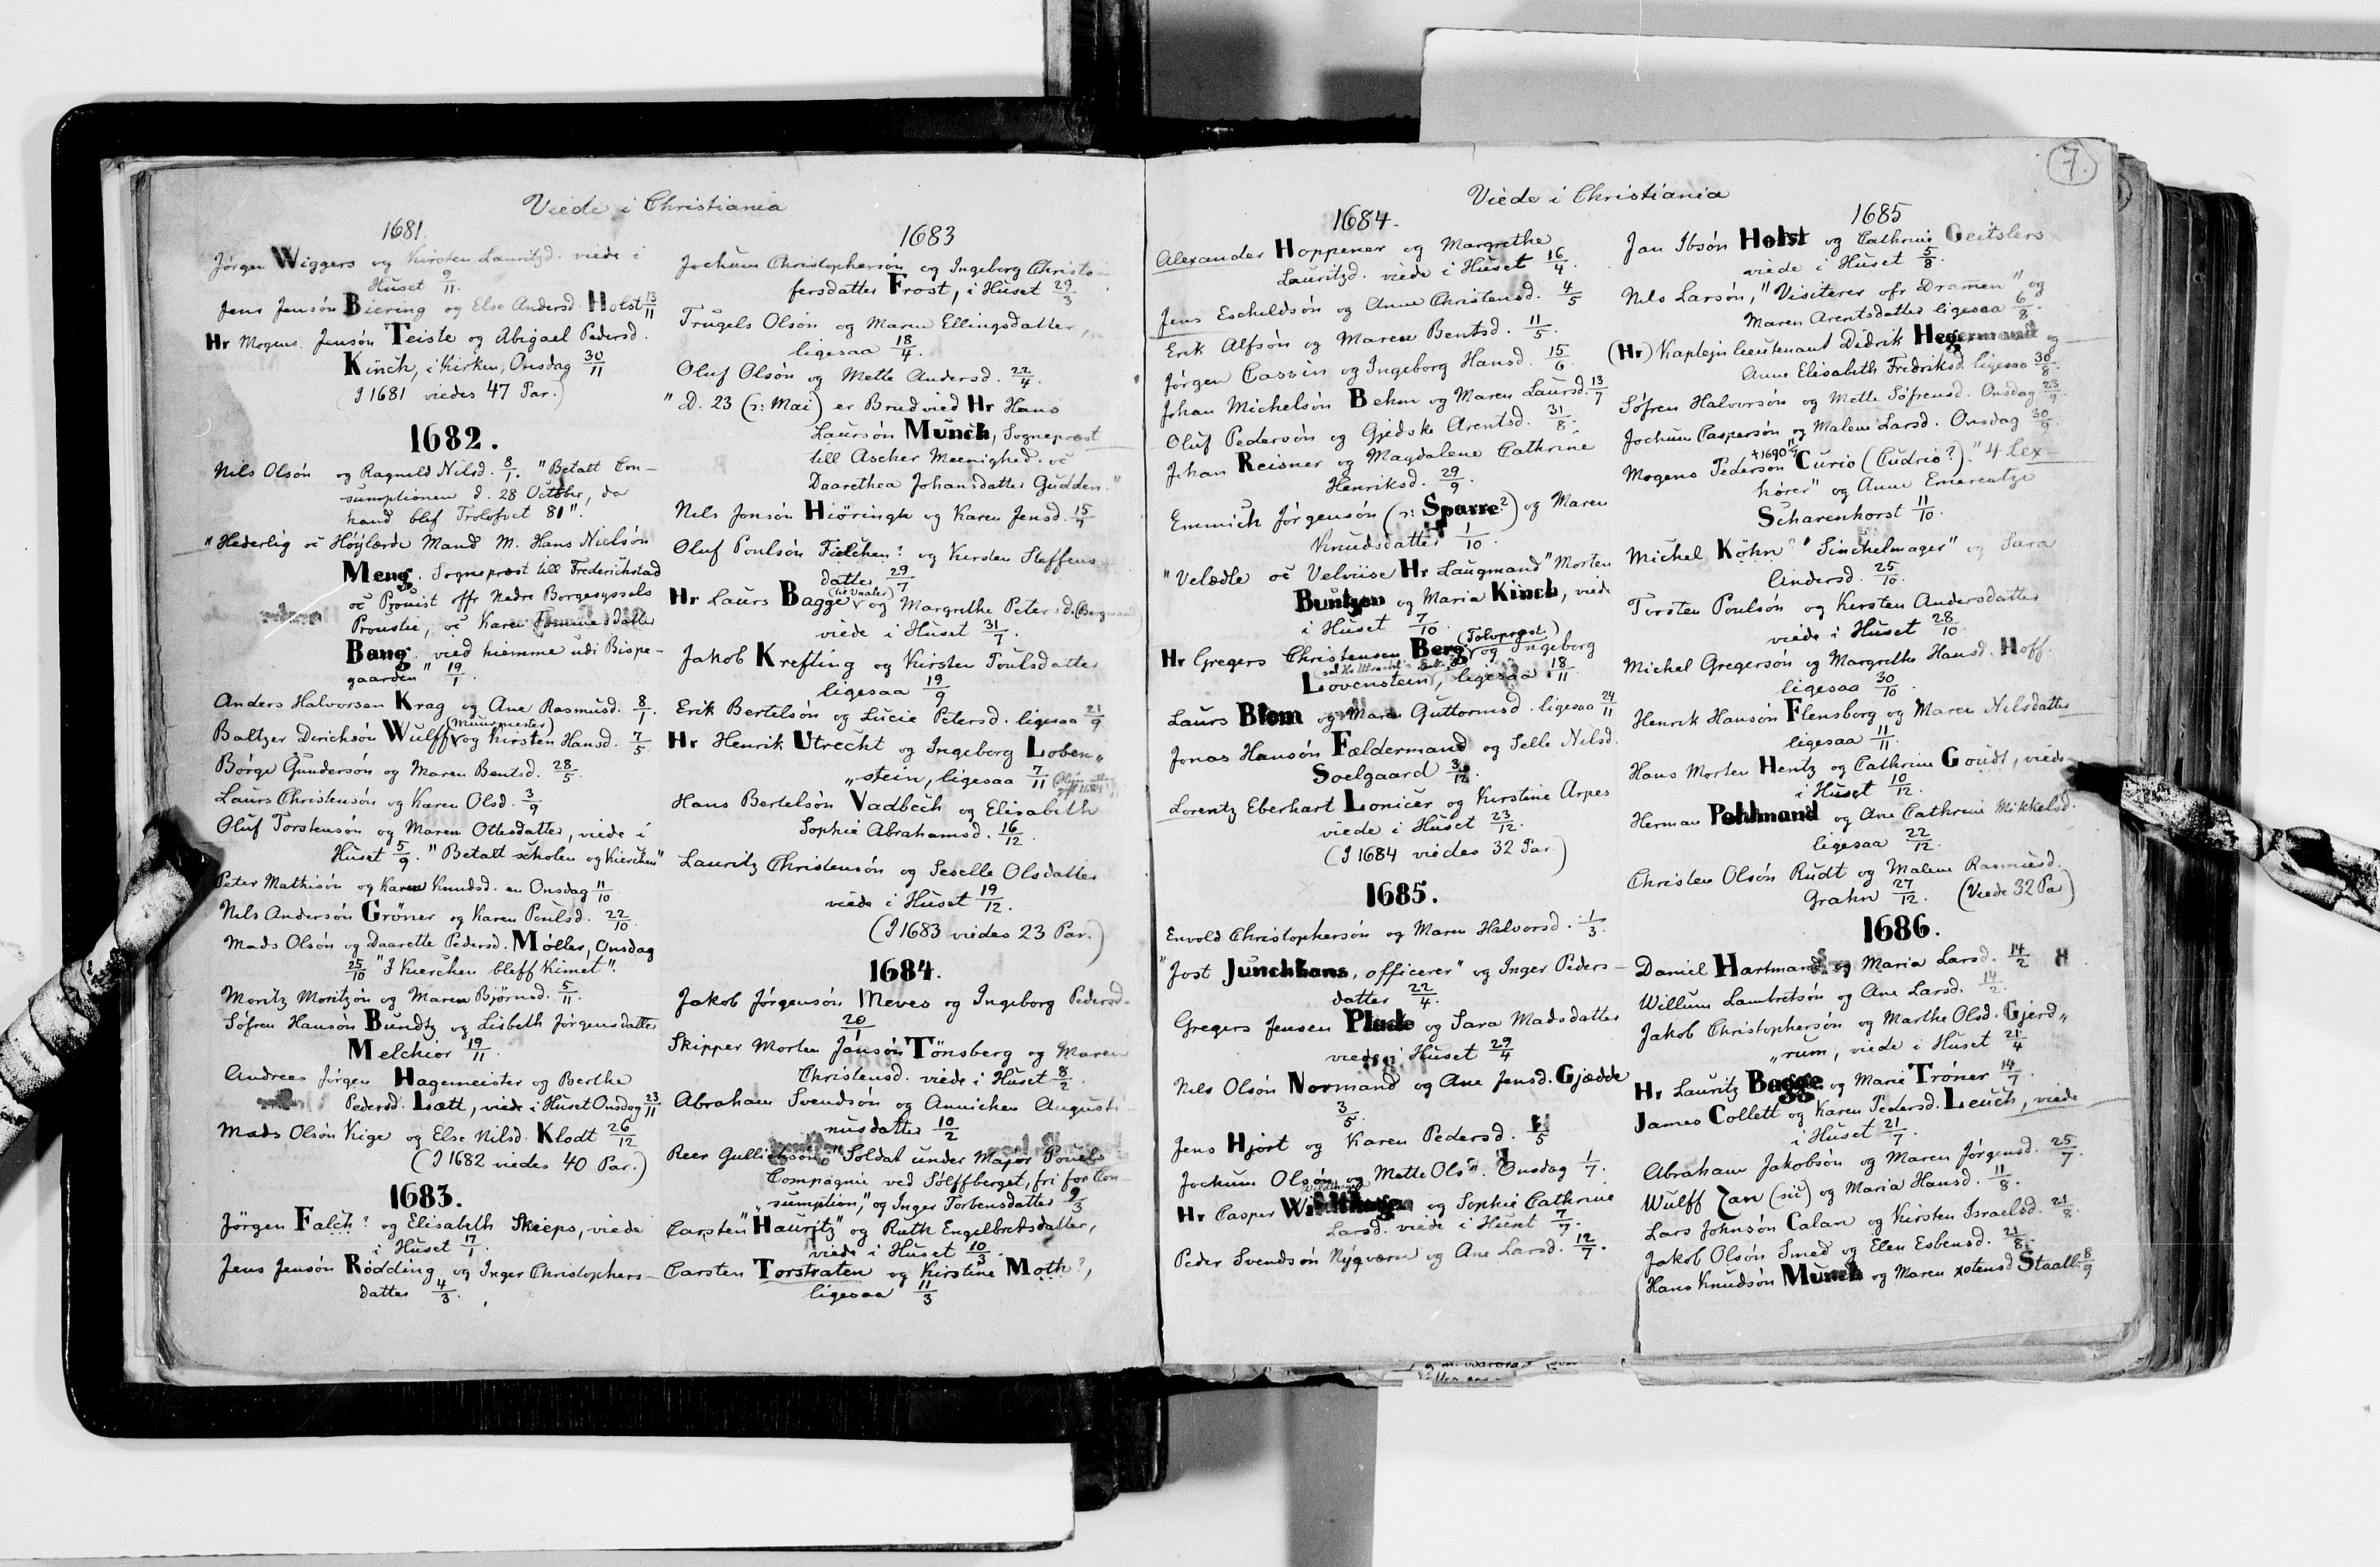 Viede i Christiania
1681.
Jørgen Wiggers og Kirsten Lauritzd. viede i
Huset 9/11.
Jens Jensön Biering og Else Andersd. Holst 13/11
Hr Mogens Jensön Teiste og Abigael Pedersd.
Kinch, i Kirken, Onsdag 30/11
(I 1681 viedes 47 Par.)
1682.
Nils Olsön og Ragnild Nilsd. 8/1. "Betalt Con-
sumptionen d. 28 October, da
hand blef Trolofvet 81".
"Hederlig oc Höylærde Mand M. Hans Nielsön
Meng. Sognepræst till Frederichstad
oc Prouist offr Nedre Borgesyssels
Proustie, oc Karen Tommesdatter
Bang. vied hiemme udi Bispe-
gaarden" 19/1.
Anders Halvorsen Krag og Ane Rasmusd. 8/1.
Baltzer Dirichsön Wulff (Muurmester) og Kirsten Hansd. 7/5
Börge Gundersön og Maren Bentsd. 28/5.
Laurs Christensön og Karen Olsd. 3/9
Oluf Torstensön og Maren Ottesdatter, viede i
Huset 5/9. "Betalt scholen og Kierchen"
Peter Mathisön og Karen Knudsd. en Onsdag 11/10
Nils Andersön Gröner og Karen Poulsd. 22/10.
Mads Olsön og Daarette Pedersd. Möller, Onsdag
25/10 "I Kierchen bleff Kimet".
Moritz Moritzön og Maren Björnsd. 5/11.
Söfren Hansön Bundtz og Lisbeth Jörgensdatter
Melchior 19/11.
Andrees Jörgen Hagemeister og Berthe
Pedersd. Lætt, viede i Huset Onsdag 23/11
Mads Olsön Kige og Else Nilsd. Klodt 26/12
(I 1682 viedes 40 Par.)
1683.
Jörgen Falch? og Elisabeth Skieps, viede
i Huset 17/1.
Jens Jensön Rödding og Inger Christophers-
datter 4/3.
1683
Jochum Christophersön og Ingeborg Christo-
fersdatter Frost, i Huset 29/3.
Trugels Olsön og Maren Ellingsdatter,
ligesaa 18/4.
Oluf Olsön og Mette Andersd. 22/4.
"D. 23 (ɔ: Mai) er Brudvied Hr Hans
Laursön Munch, Sognepræst
till Ascher Meenighed. oc
Daarethea Johansdatter Gudden."
Nils Jonsön Hiöringh og Karen Jensd. 15/7
Oluf Poulsön Fielchen? og Kirsten Steffens
datter 29/7
Hr Laurs Bagge (til Vaaler) og Margrethe Petersd. (Bergmand)
viede i Huset 31/7.
Jakob Krefting og Kirsten Poulsdatter
ligesaa 19/9
Erik Bertelsön og Lucie Petersd. ligesaa 21/9
Hr Henrik Utrecht og Ingeborg Loben"
"stein, ligesaa 7/11
Hans Bertelsön Vadbech og Elisabeth
Sophie Abrahamsd. 16/12.
Lauritz Christensön og Seselle Olsdatter
viede i Huset 19/12.
(I 1683 viedes 23 Par.)
1684.
Jakob Jörgensön Meves og Ingeborg Pedersd.
20/1
Skipper Morten Jansön Tönsberg og Maren
Christensd. viede i Huset 8/2.
Abraham Svendsön og Annichen Augusti-
nusdatter 10/2
Reer Gullichsön, "Soldat under Major Pouels
Compagnie ved Sölffberget, fri for Con-
sumption," og Inger Torbensdatter 9/3
Carsten "Hauritz" og Ruth Engelbretsdatter,
viede i Huset 10/3.
Carsten Torstraten og Kirstine Moth?,
ligesaa 11/3
7.
Viede i Christiania
1684.
Alexander Hoppener og Margrethe
Lauritzd. viede i Huset 16/4.
Jens Escheldsön og Anne Christensd. 4/5
Erik Alfsön og Maren Bentsd. 11/5.
Jörgen Cassin og Ingeborg Hansd. 15/6.
Johan Michelsön Behm og Maren Laursd. 13/7
Oluf Pedersön og Gjedske Arentsd. 31/8.
Johan Reisner og Magdalene Cathrine
Henriksd. 29/9.
Emmich Jörgensön (ɔ: Sparre?) og Maren
Knudsdatter 1/10.
"Velædle oc Velviise Hr Laugmand" Morten
Buntzen og Maria Kinch, viede
i Huset 7/10.
Hr Gregers Christensen Berg (Tolvpræst) og Ingeborg
Lovenstein, ligesaa 18/11
Laurs Blom og Maren Guttormsd. ligesaa 24/11
Jonas Hansön Fældermand og Selle Nilsd.
Soelgaard 3/12.
Lorentz Eberhart Lonicer og Kirstine Arpes
viede i Huset 23/12.
(I 1684 viedes 32 Par.)
1685.
Envold Christophersön og Maren Halvorsd. 1/3.
"Jost Junckhans, officerer" og Inger Peders-
datter 22/4.
Gregers Jensen Plade og Sara Madsdatter
viede i Huset 29/4
Nils Olsön Normand og Ane Jensd. Gjædde
3/5.
Jens Hjort og Karen Pedersd. /5
Jochum Olsön og Mette Olsd. Onsdag 1/7.
Hr Casper Wildthagen og Sophie Cathrine
Larsd. viede i Huset 7/7.
Peder Svendsön Nyqværn og Ane Larsd. 12/7.
1685
Jan Ibsön Holst og Cathrine Geitslers
viede i Huset 5/8.
Nils Larsön, "Visiterer ofr Dramen" og
Maren Arentsdatter ligesaa 6/8.
(Hr) Kaptejnlieutenant Didrik Hegermandt og
Anne Elisabeth Fredriksd. ligesaa 30/8.
Söfren Halvorsön og Mette Söfrensd. Onsdag 23/9.
Jochum Caspersön og Malene Larsd. Onsdag 30/9.
Mogens Pedersön Curio (Cudrio?). "4 Lex-
hörer" og Anne Emerentze
Scharenhorst 11/10.
Michel Köhn? "Sinchelmager" og Sara
Andersd. 25/10.
Torsten Poulsön og Kirsten Andersdatter
viede i Huset 28/10.
Michel Gregersön og Margrethe Hansd. Hoff.
ligesaa 30/10.
Henrik Hansön Flensborg og Maren Nilsdatter
ligesaa 11/11.
Hans Morten Hentz og Cathrine Goudt, viede
i Huset 10/12.
Herman Pohlmand og Ane Cathrine Mikkelsd.
ligesaa 22/12.
Christen Olsön Rudt og Malene Rasmusd.
Grahn 27/12. (Viede 32 Par)
1686.
Daniel Hartmand og Maria Larsd. 14/2
Willum Lambretsön og Ane Larsd. 14/2.
Jakob Christophersön og Marthe Olsd. Gjerd"
"rum, viede i Huset 21/4
Hr Lauritz Bagge og Marie Tröner 14/7.
James Collett og Karen Pedersd. Leuch, viede
i Huset 21/7.
Abraham Jakobsön og Maren Jörgensd. 25/7.
Wulff Zan (sic) og Maria Hansd. 11/8.
Lars Johnsön Calan og Kirsten Israelsd. 21/8.
Jakob Olsön Smed og Elen Esbensd. 21/8.
Hans Knudsön Munch og Maren xstensd Staall. 8/9